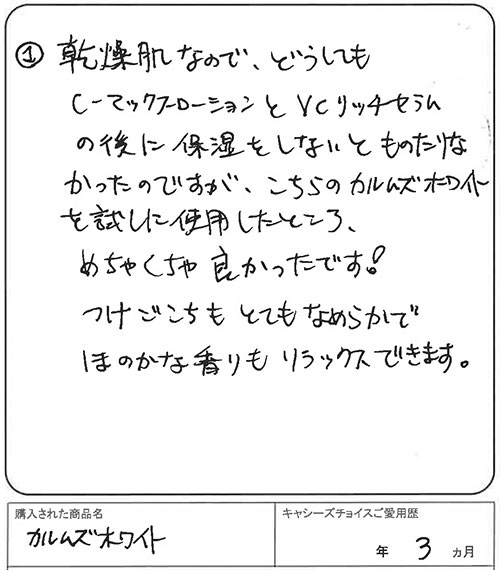 ① 乾燥肌なので、どうしても
C-マックスローションとVCリッチセラム
の後に保湿をしないとものたりな
かったのですが、こちらのカルムズホワイト
を試しに使用したところ、
めちゃくちゃ良かったです!
つけごこちもとてもなめらかで
ほのかな香りもリラックスできます。
購入された商品名
カルムズホワイト
キャシーズチョイスご愛用歴
年 3 ヵ月